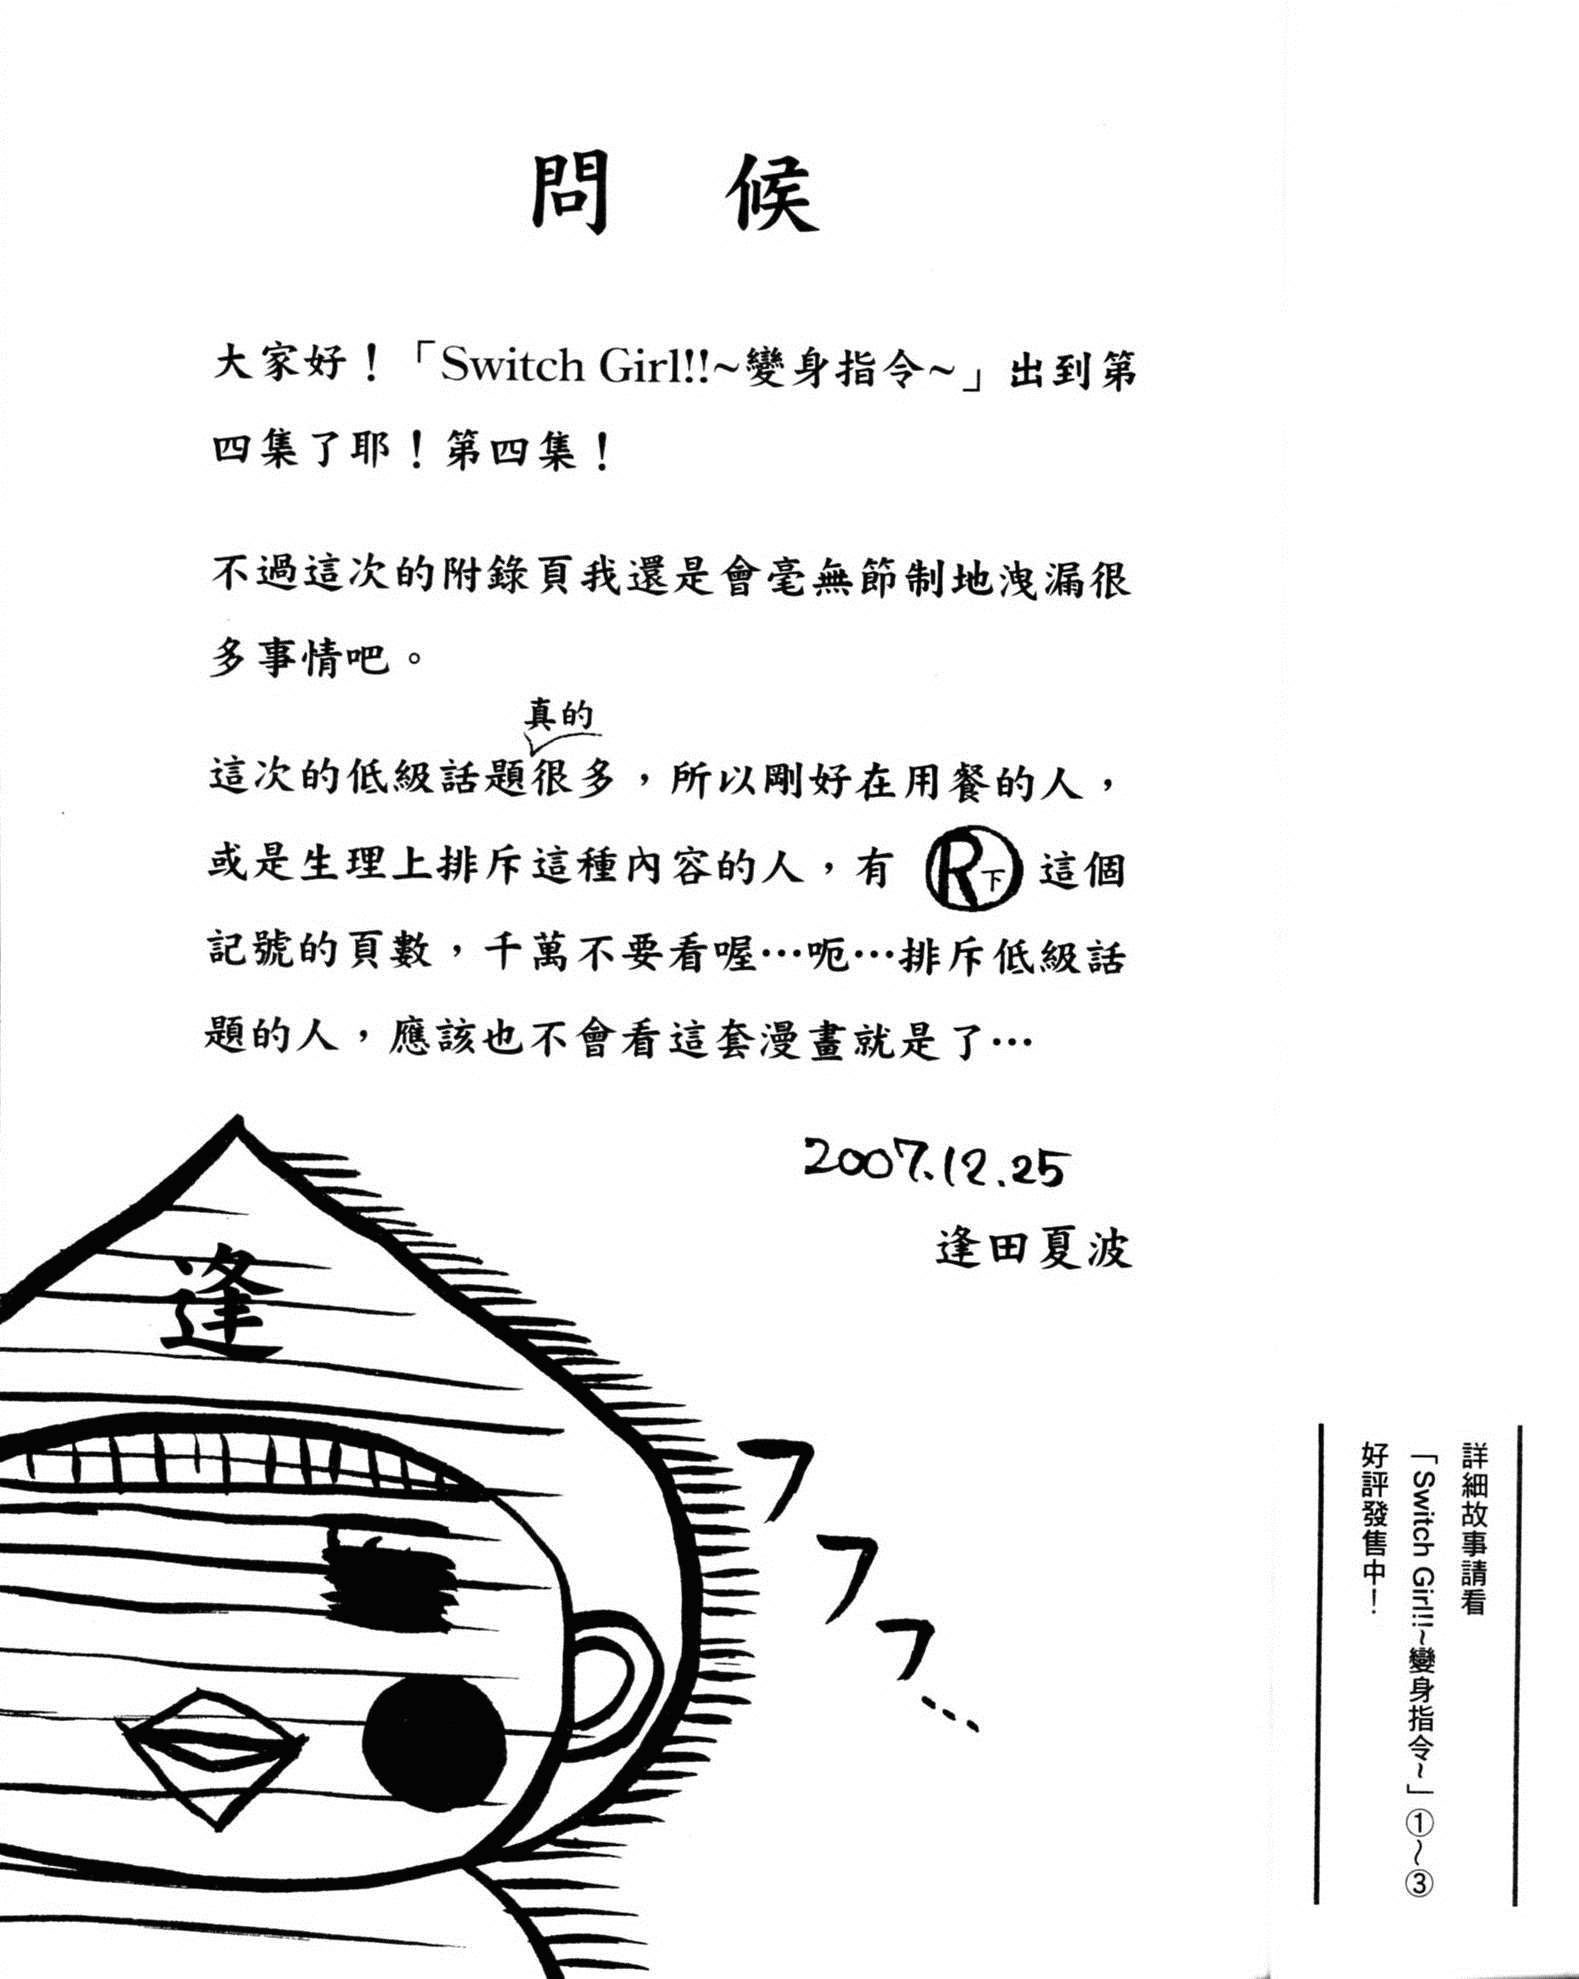 問候
大家好！「Switch Girl!!~變身指令~」出到第
四集了耶！第四集！
不過這次的附錄頁我還是會毫無節制地洩漏很
多事情吧。
真的
這次的低級話題很多，所以剛好在用餐的人，
或是生理上排斥這種內容的人，有Ⓡ下這個
記號的頁數，千萬不要看喔…呃…排斥低級話
題的人，應該也不會看這套漫畫就是了…
2007.12.25
逢田夏波
逢
フフフ…
詳細故事請看
「Switch Girl!!~變身指令~」①~③
好評發售中！